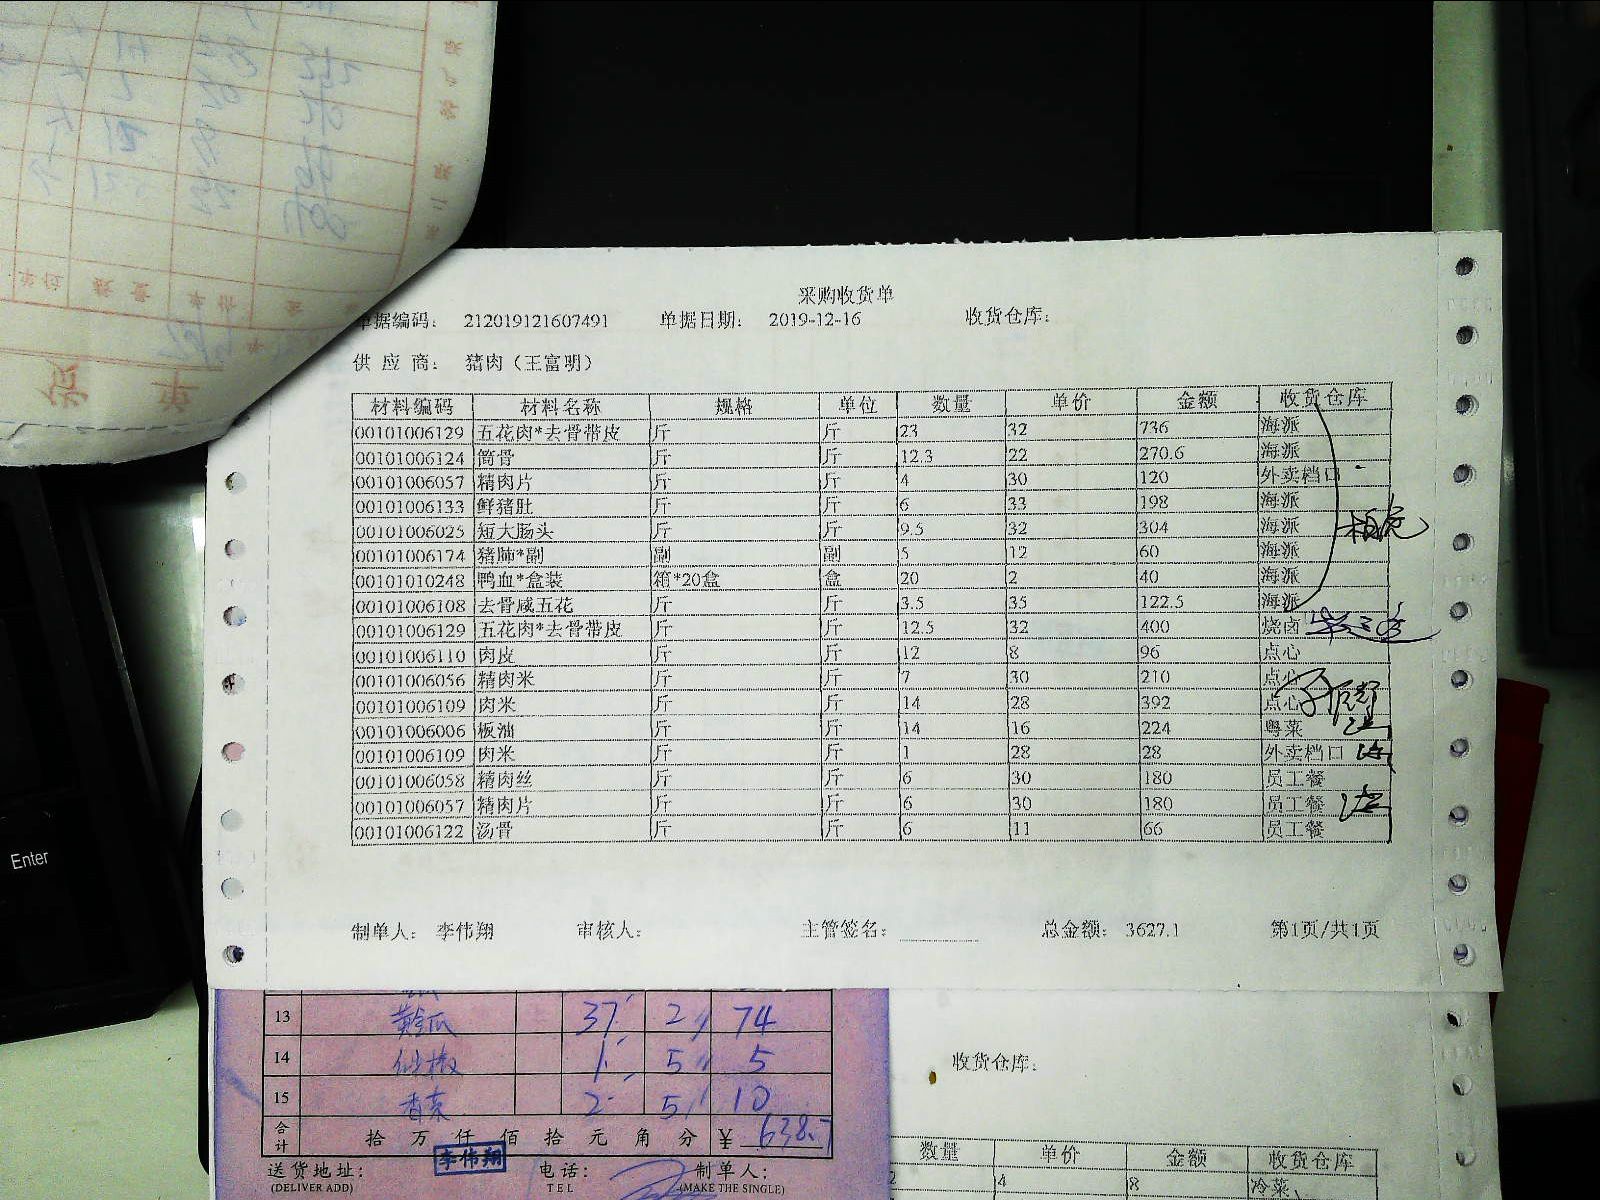 采购收货单
单据编码: 212019121607491 单据日期: 2019-12-16 收货仓库:
供 应 商: 猪肉（王富明）
材料编码 材料名称 规格 单位 数量 单价 金额 收货仓库
00101006129 五花肉*去骨带皮 斤 斤 23 32 736 海派
00101006124 筒骨 斤 斤 12.3 22 270.6 海派
00101006057 精肉片 斤 斤 4 30 120 外卖档口
00101006133 鲜猪肚 斤 斤 6 33 198 海派
00101006025 短大肠头 斤 斤 9.5 32 304 海派
00101006174 猪肺*副 副 副 5 12 60 海派
00101010248 鸭血*盒装 箱*20盒 盒 20 2 40 海派
00101006108 去骨咸五花 斤 斤 3.5 35 122.5 海派
00101006129 五花肉*去骨带皮 斤 斤 12.5 32 400 烧卤
00101006110 肉皮 斤 斤 12 8 96 点心
00101006056 精肉米 斤 斤 7 30 210 点心
00101006109 肉米 斤 斤 14 28 392 点心
00101006006 板油 斤 斤 14 16 224 粤菜
00101006109 肉米 斤 斤 1 28 28 外卖档口
00101006058 精肉丝 斤 斤 6 30 180 员工餐
00101006057 精肉片 斤 斤 6 30 180 员工餐
00101006122 汤骨 斤 斤 6 11 66 员工餐
制单人: 李伟翔 审核人: 主管签名: 总金额: 3627.1 第1页/共1页
13 黄金瓜 37 2 74
14 1 5 5
15 香菜 2 5 10
合计 拾 万 仟 佰 拾 元 角 分 ¥ 638.7
送货地址: 李伟翔 电话: 制单人:
(DELIVER ADD) TEL (MAKE THE SINGLE)
收货仓库:
数量 单价 金额 收货仓库
4 8 冷菜
Enter